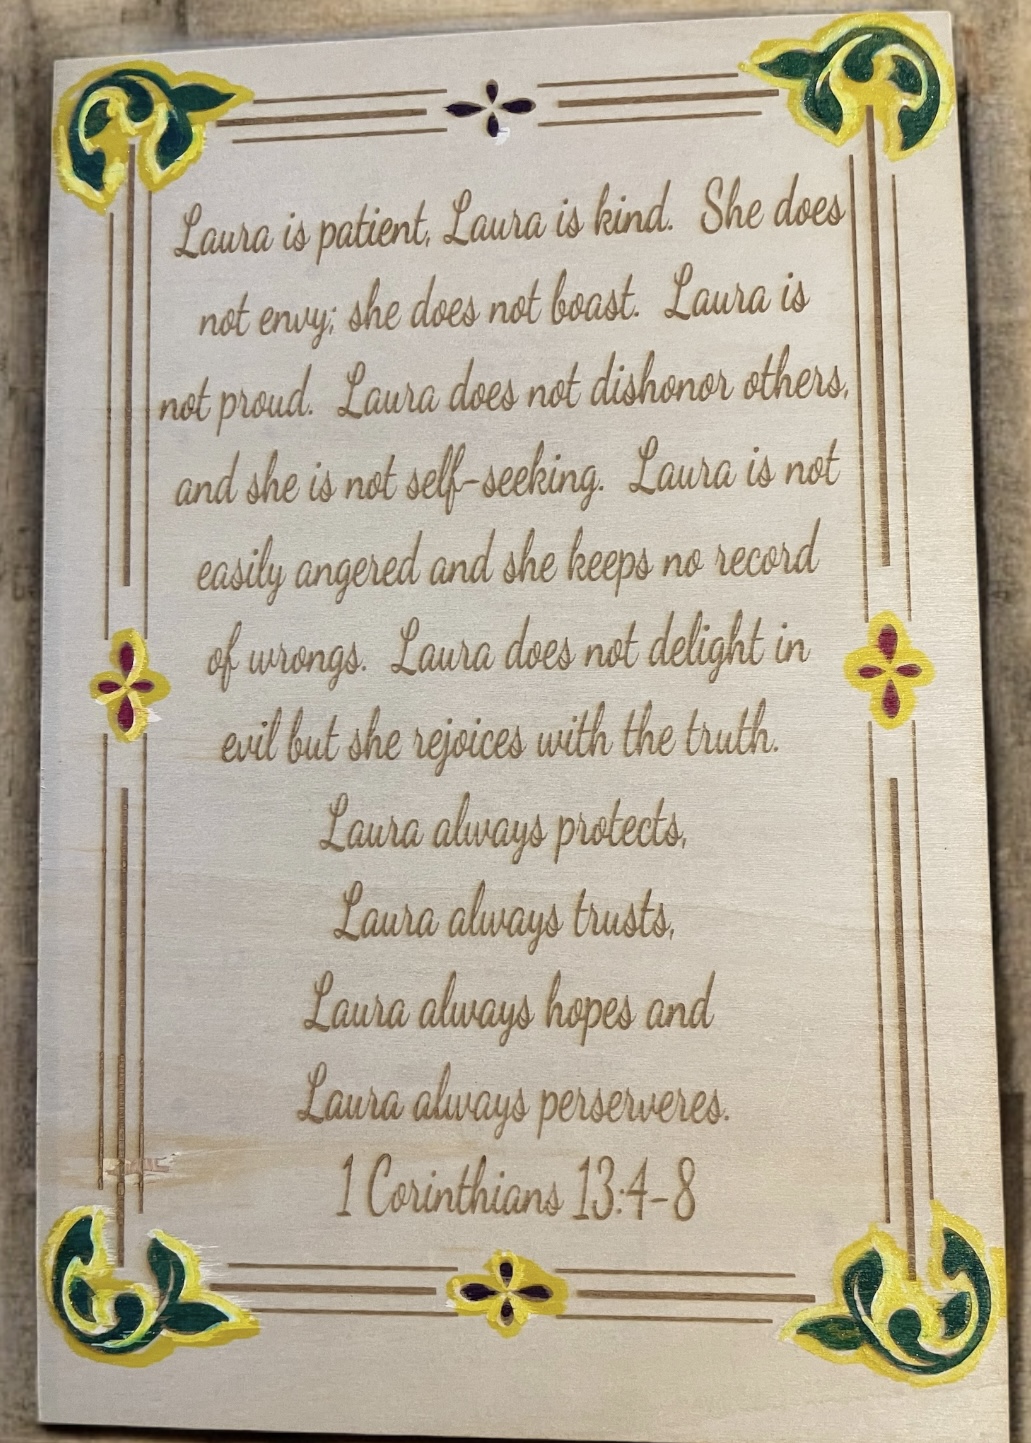 Laura is patient, Laura is kind. She does
not envy; she does not boast. Laura is
not proud. Laura does not dishonor others,
and she is not self-seeking. Laura is not
easily angered and she keeps no record
of wrongs. Laura does not delight in
evil but she rejoices with the truth.
Laura always protects,
Laura always trusts,
Laura always hopes and
Laura always perserveres.
1 Corinthians 13:4-8